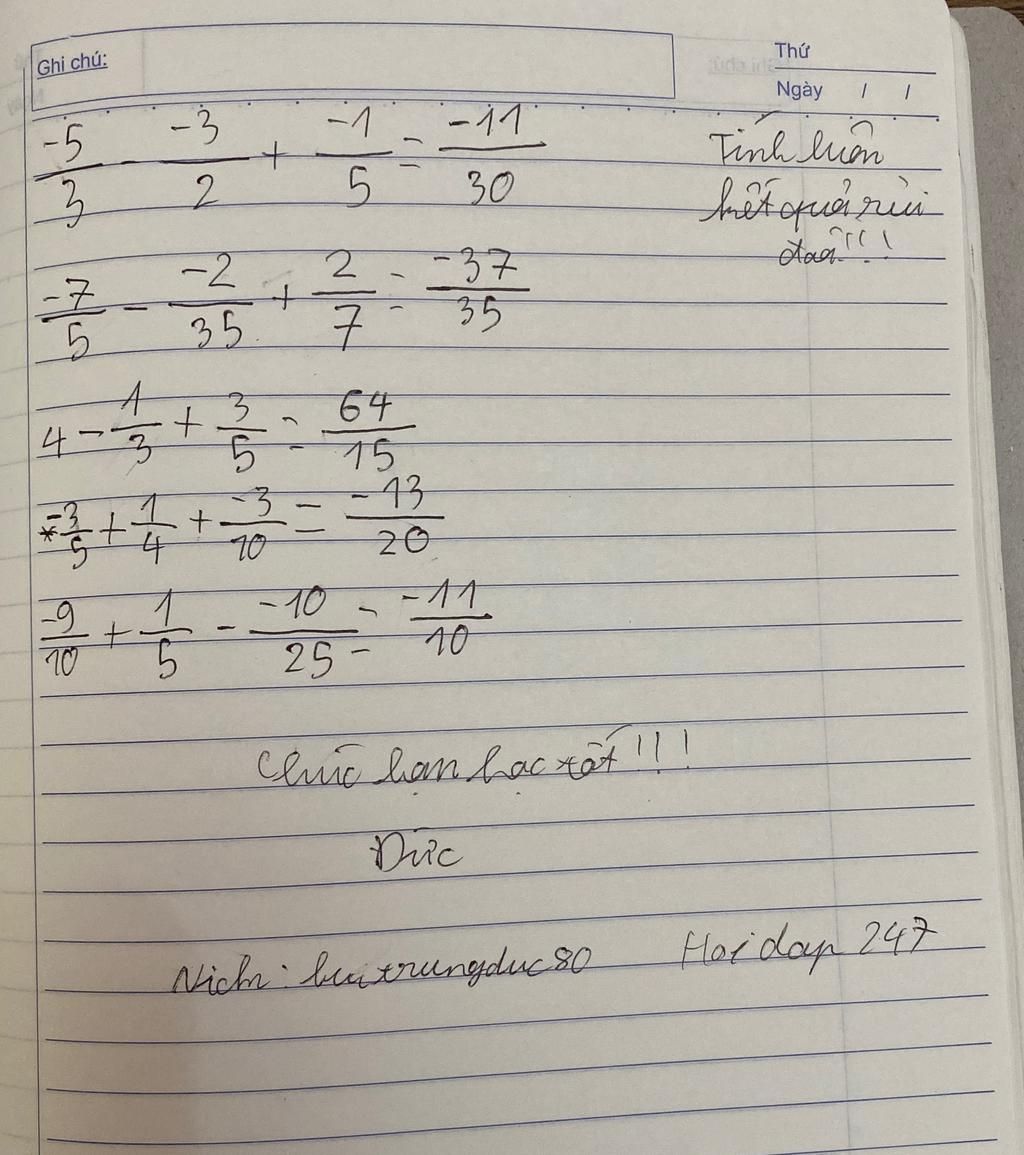 Ghi chú:
Thứ
Ngày / /
-5/3 - -3/2 + -1/5 = -11/30
Tính luôn
kết quả rùi
đaá!!!
-7/5 - -2/35 + 2/7 = -37/35
4 - 1/3 + 3/5 = 64/15
* -3/5 + 1/4 + -3/10 = -13/20
-9/10 + 1/5 - -10/25 = -11/10
Chúc bạn học tốt!!!
Đức
Nich: buitrungduc80
Hoidap 247